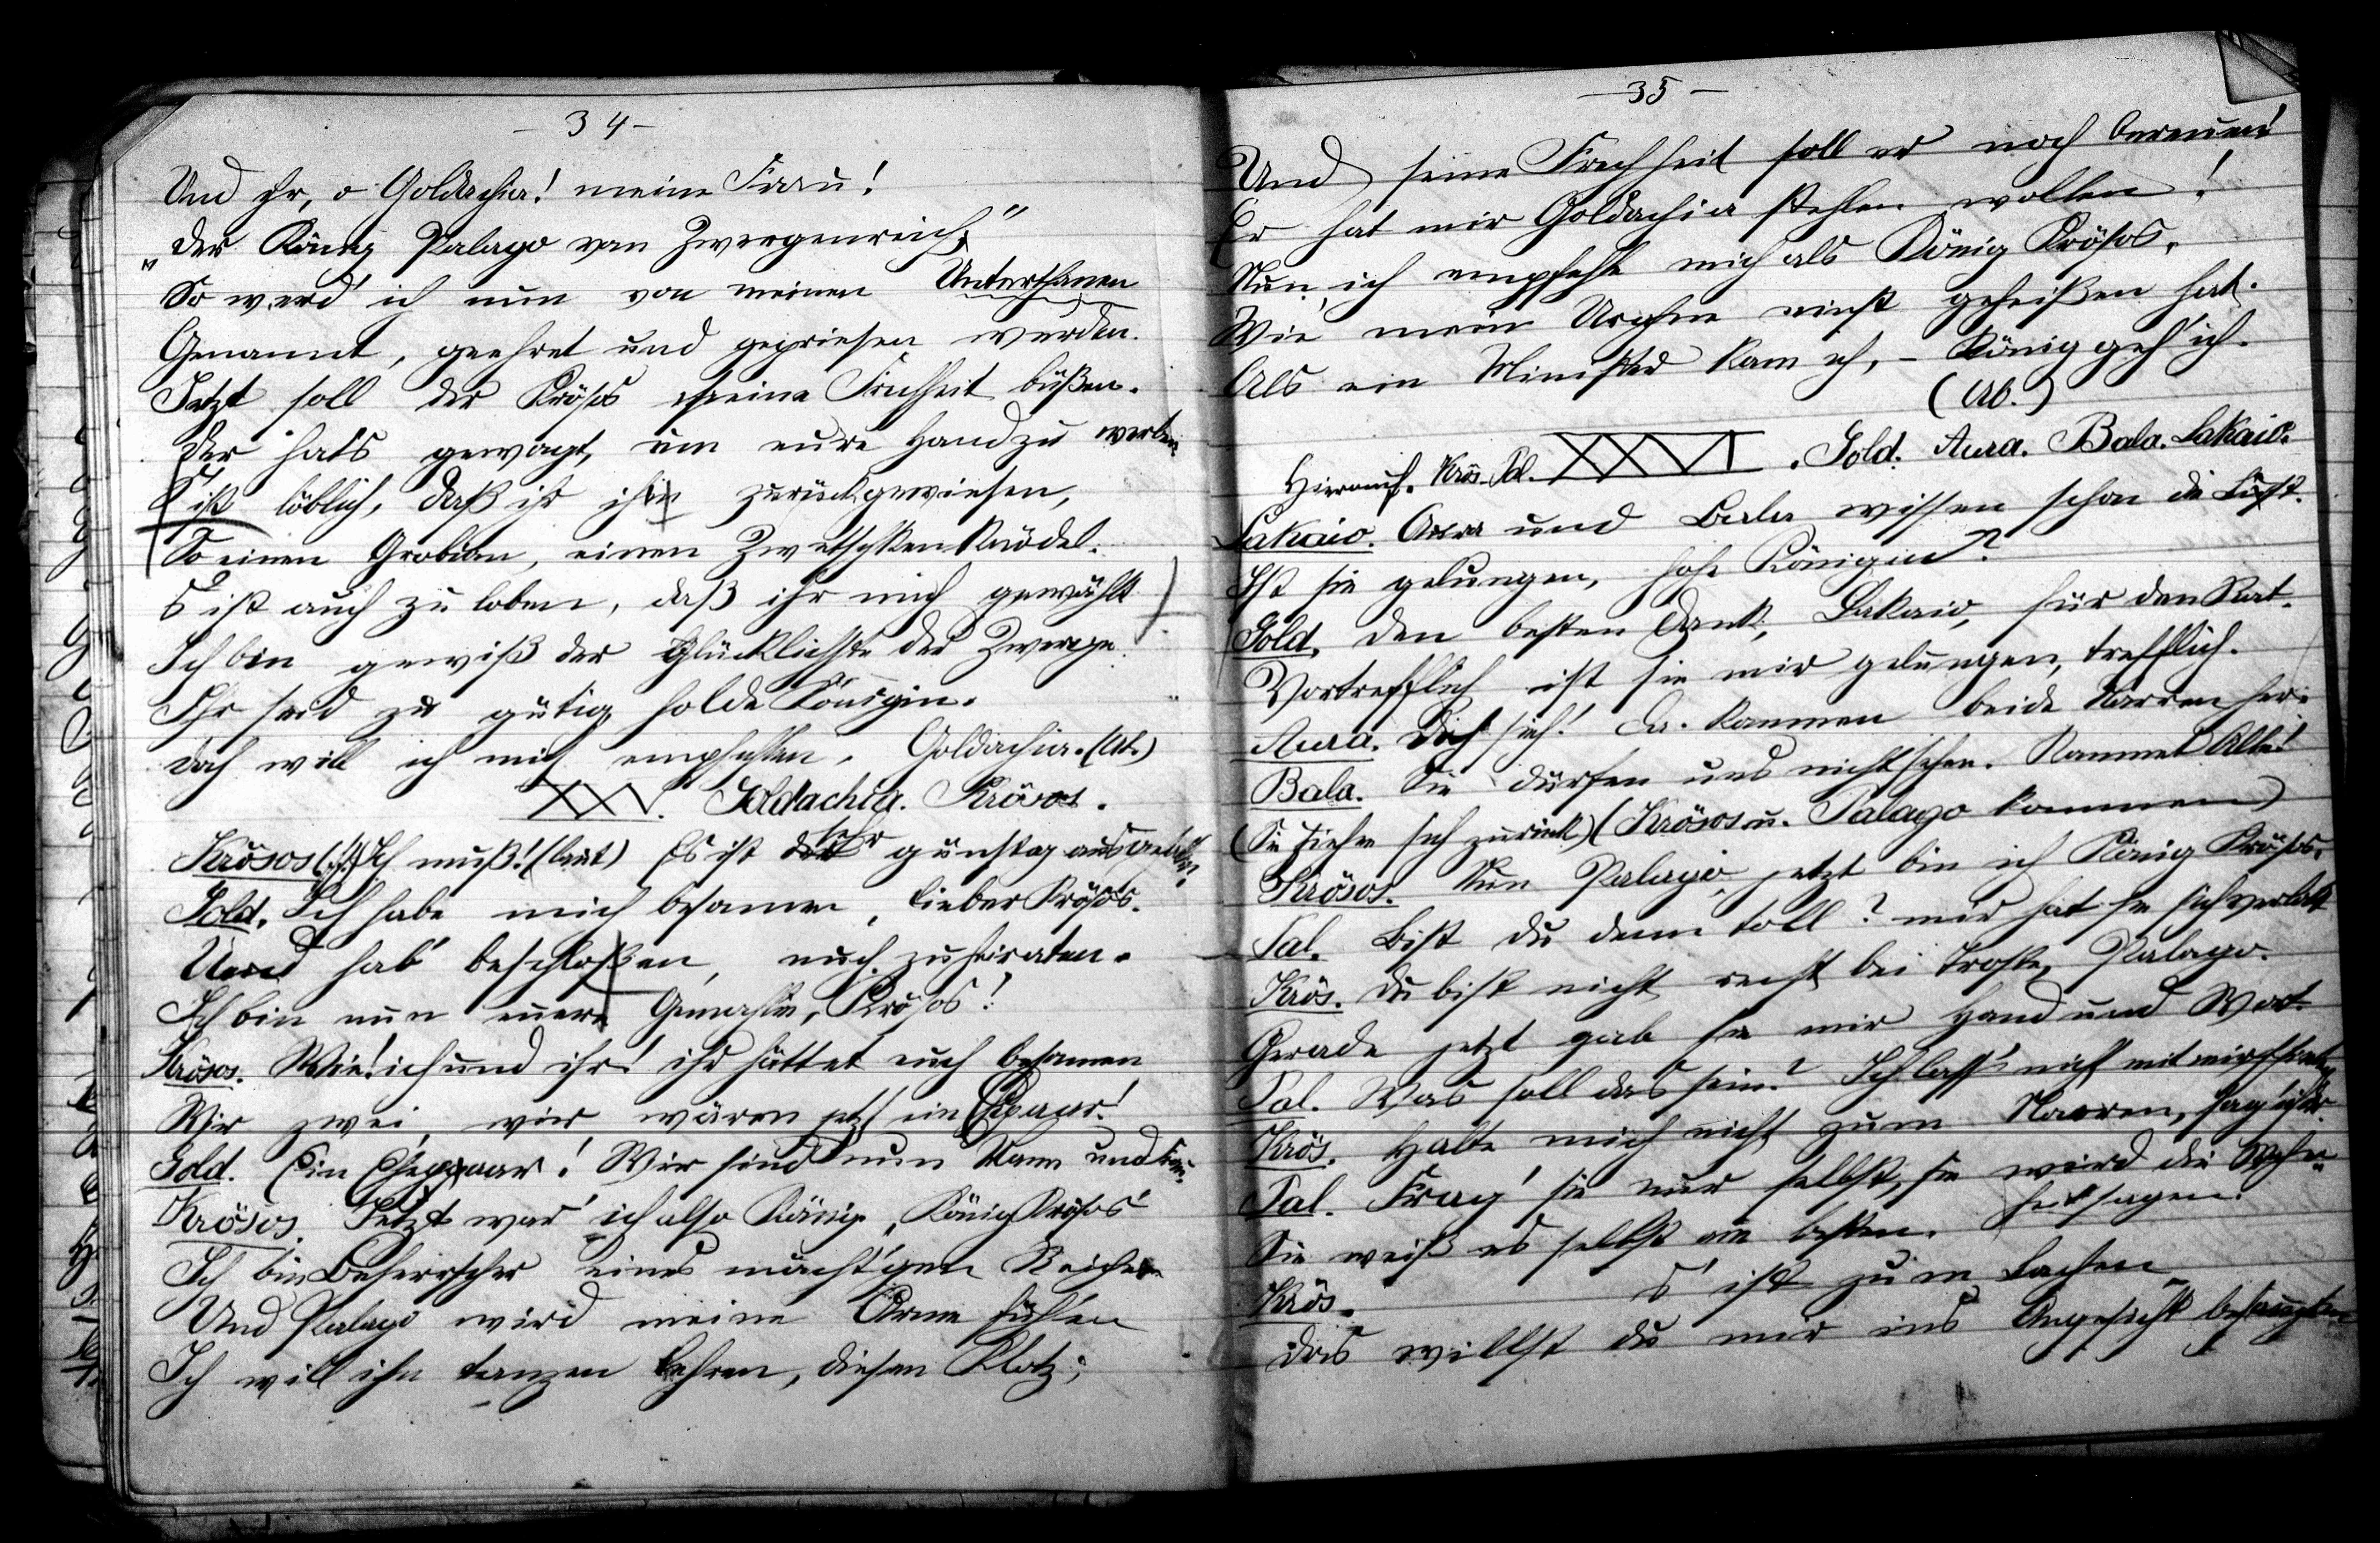 - 34 -
Und ihr, o Goldachia! meine Frau!
„Der König Palago von Zwergenreich,"
So werd' ich nun von meinen Unterthanen
Genannt, geehret und gepriesen werden.
Jetzt soll der Krösos seine Frechheit büßen.
Der hat's gewagt, um eure Hand zu werben.
S'ist löblich, daß ihr ihn zurückgewiesen,
So einen Grobian, einen Zwetschkenknödel.
S'ist auch zu loben, daß ihr mich gewählt.
Ich bin gewiß der Glücklichste der Zwerge.
Ihr seid zu gütig holde Königin.
Doch will ich mich empfehlen, Goldachia. (Ab.)
XXV. Goldachia. Krösos.
Krösos (f.s.) Ich muß! (laut) Es ist sehr günstig ausgefallen?
Gold. Ich habe mich besonnen, lieber Krösos.
Und hab' beschloßen, euch zu heiraten.
Ich bin nun euere Gemahlin, Krösos!
Krösos. Wie! ich und ihr! ihr hättet euch besonnen
Wir zwei, wir wären jetzt ein Ehepaar!
Gold. Ein Ehepaar! Wir sind nun Mann und Frau.
Krösos. Jetzt wär' ich also König, „König Krösos"
Ich bin Beherrscher eines mächt'gen Reiches
Und Palago wird meine Arme fühlen
Ich will ihn tanzen lehren, diesen Klotz;
- 35 -
Und seine Frechheit soll er noch bereuen!
Er hat mir Goldachia stehlen wollen!
Nun, ich empfehle mich als König Krösos,
Wie mein Urahne einst geheißen hat.
Als ein Minister kam ich, - König geh' ich.
(Ab.)
Hierauf. Krös. Pal. XXVI. Gold. Aura. Bala. Lakaio.
Lakaio. Aura und Bala wissen schon die List.
Ist sie gelungen, hohe Königin?
Gold. Den besten Dank, Lakaio, für den Rat.
Vortrefflich ist sie mir gelungen, trefflich.
Aura. Doch sieh! Da kommen beide Narren her.
Bala. Sie dürfen uns nicht sehen. Kommet Alle!
(Sie ziehn sich zurück) (Krösos u. Palago kommen)
Krösos. Nun Palago, jetzt bin ich König Krösos.
Pal. Bist du denn toll? mir hat sie sich verlobt
Krös. Du bist nicht recht bei Troste, Palago.
Gerade jetzt gab sie mir Hand und Wort.
Pal. Was soll das sein? Ich lass' nicht mit mir scherzen
Krös. Halte mich nicht zum Narren, sag' ich dir.
Pal. Frag' sie nur selbst, sie wird die Wahr-
heit sagen.
Sie weiß es selbst am besten.
Krös. S' ist zum Lachen
Das willst du mir ins Angesicht behaupten